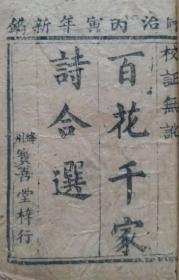 同治丙寅年新鐫
校証無訛
百花千家
詩合選
製善堂梓行